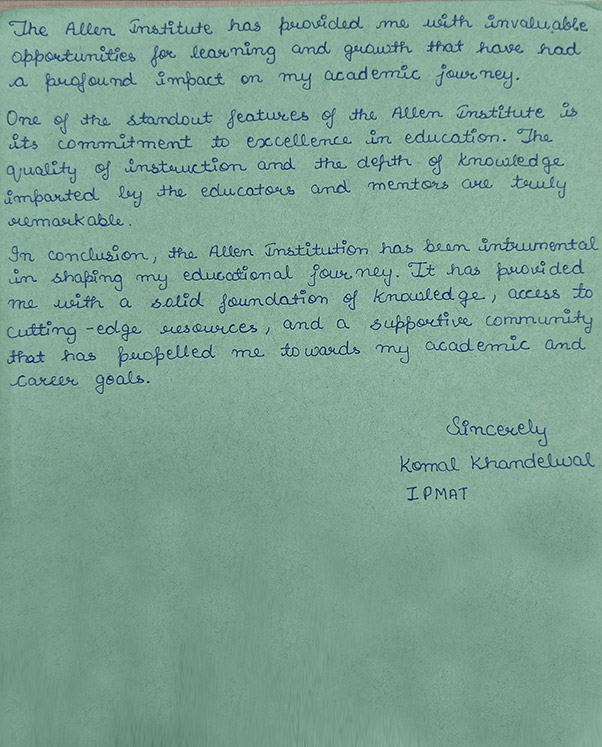 The Allen Institute has provided me with invaluable
opportunities for learning and growth that have had
a profound impact on my academic journey.
One of the standout features of the Allen Institute is
its commitment to excellence in education. The
quality of instruction and the depth of knowledge
imparted by the educators and mentors are truly
remarkable.
In conclusion, the Allen Institution has been intrumental
in shaping my educational journey. It has provided
me with a solid foundation of knowledge, access to
cutting-edge resources, and a supportive community
that has propelled me towards my academic and
career goals.
Sincerely
Komal Khandelwal
IPMAT